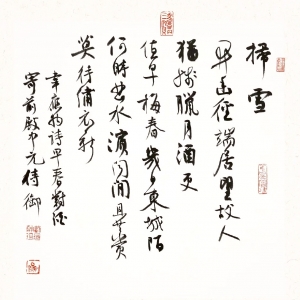 掃雪
開幽徑端居望故人
猶殘臘月酒更
值早梅春幾日東城陌
何時曲水濱聞閒且共賞
莫待繡衣新
韋應物詩早春對雪
寄前殿中元侍御